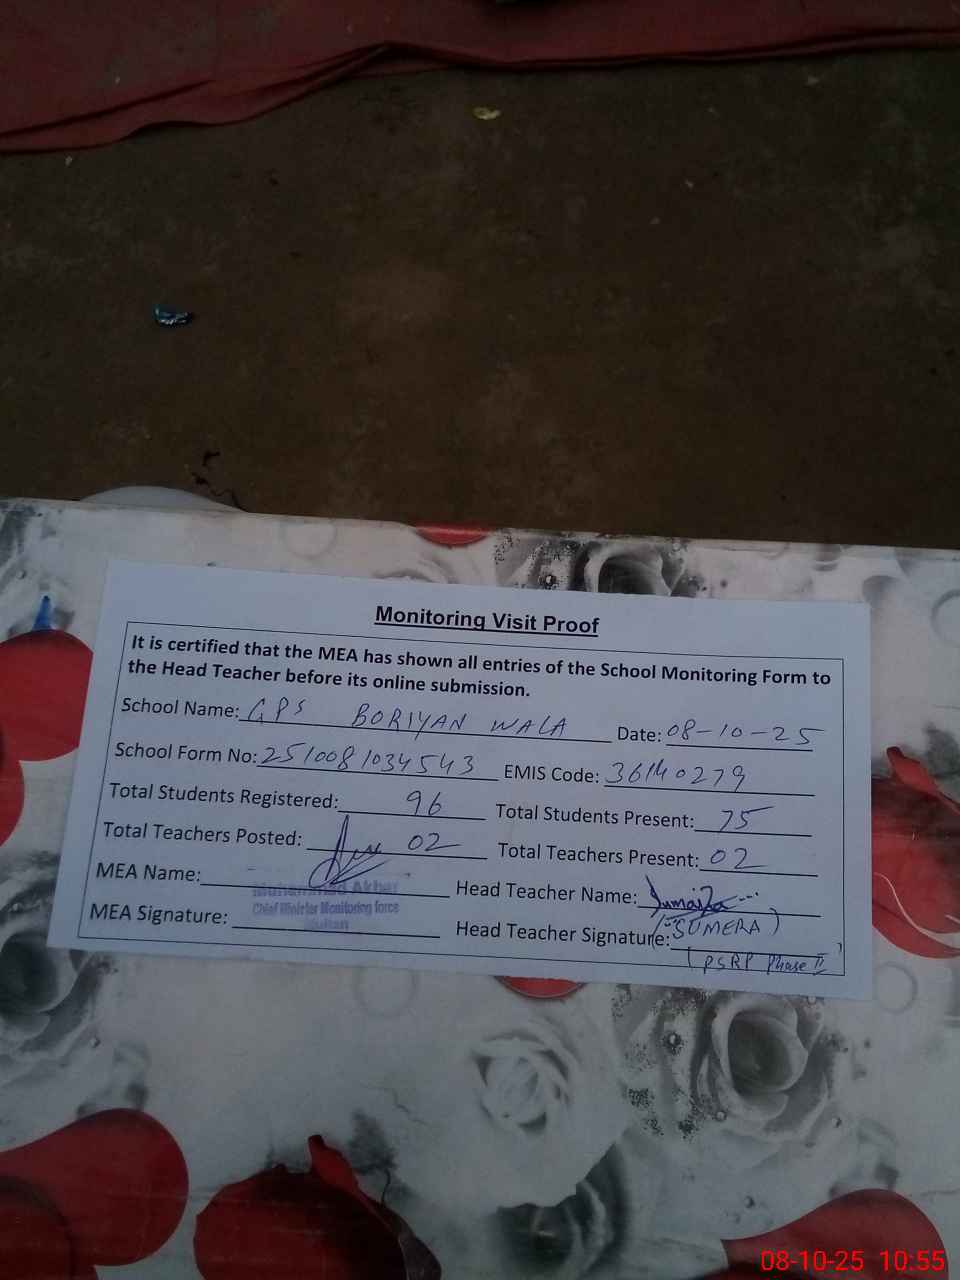 Monitoring Visit Proof
It is certified that the MEA has shown all entries of the School Monitoring Form to
the Head Teacher before its online submission.
School Name: GPS BORIYAN WALA Date: 08-10-25
School Form No: 2510081034543 EMIS Code: 36140279
Total Students Registered: 96 Total Students Present: 75
Total Teachers Posted: 02 Total Teachers Present: 02
MEA Name: Head Teacher Name:
Muhammad Akbar
Chief Minister Monitoring force
Multan
MEA Signature: Head Teacher Signature: (SUMERA)
(PSRP Phase II)
08-10-25 10:55